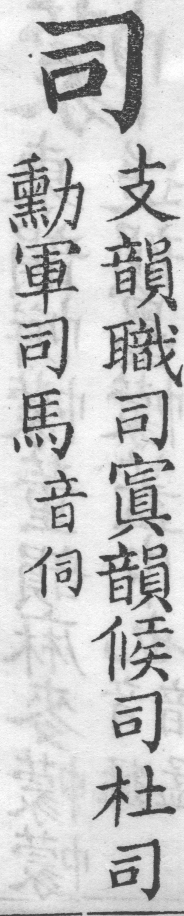 司
支韻職司寘韻候司杜司
勳軍司馬音伺